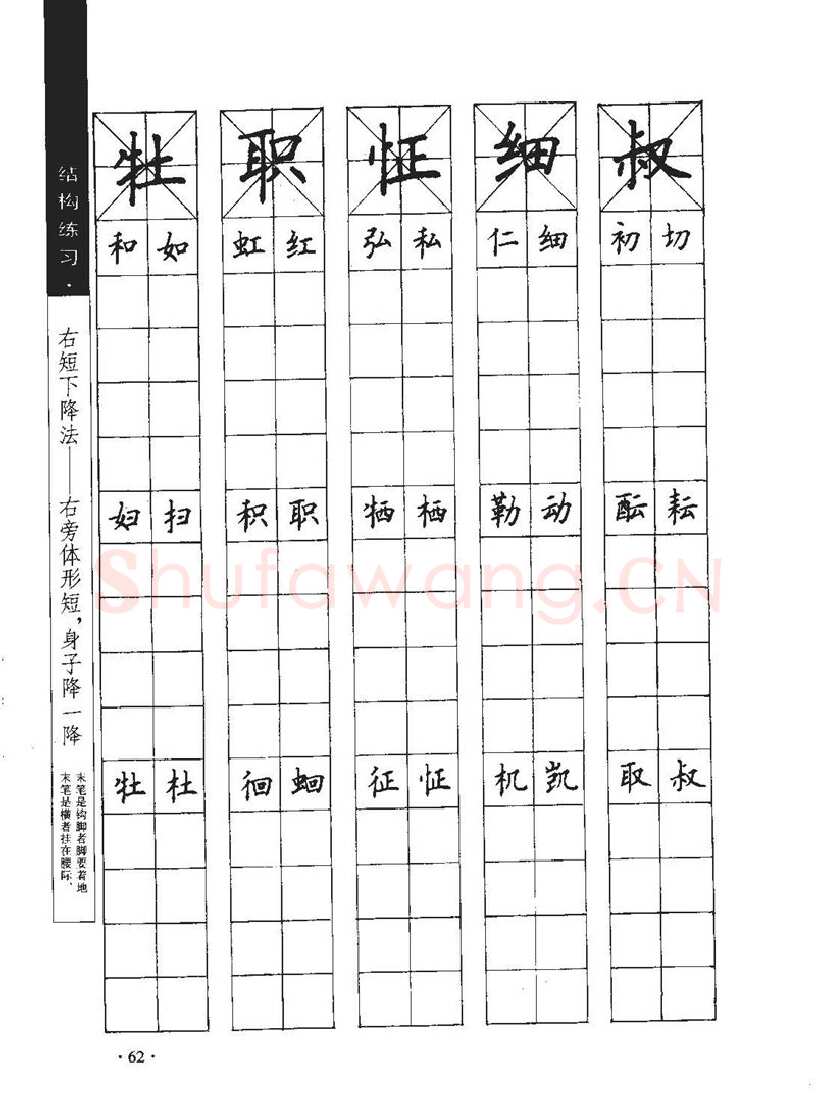 结构练习·
右短下降法——右旁体形短，身子降一降
末笔是钩脚者脚要着地
末笔是横者挂在腰际。
牡 职 怔 细 叔
和 如 虹 红 弘 私 仁 细 初 切
妇 扫 枳 职 牺 栖 勒 动 酝 耘
牡 杜 徊 蛔 征 怔 机 凯 取 叔
Shufawang.CN
·62·